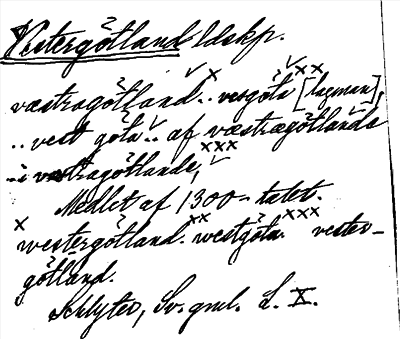 Vestergötland ldskp.
væstragötland .. vesgöta [lagman],
.. vest göta .. af væstrægötlands
.. i vestragötlande,
Medlet af 1300-talet.
westergötland. westgöta. vester-
götland.
Schlyter, Sv. gml. L. X.